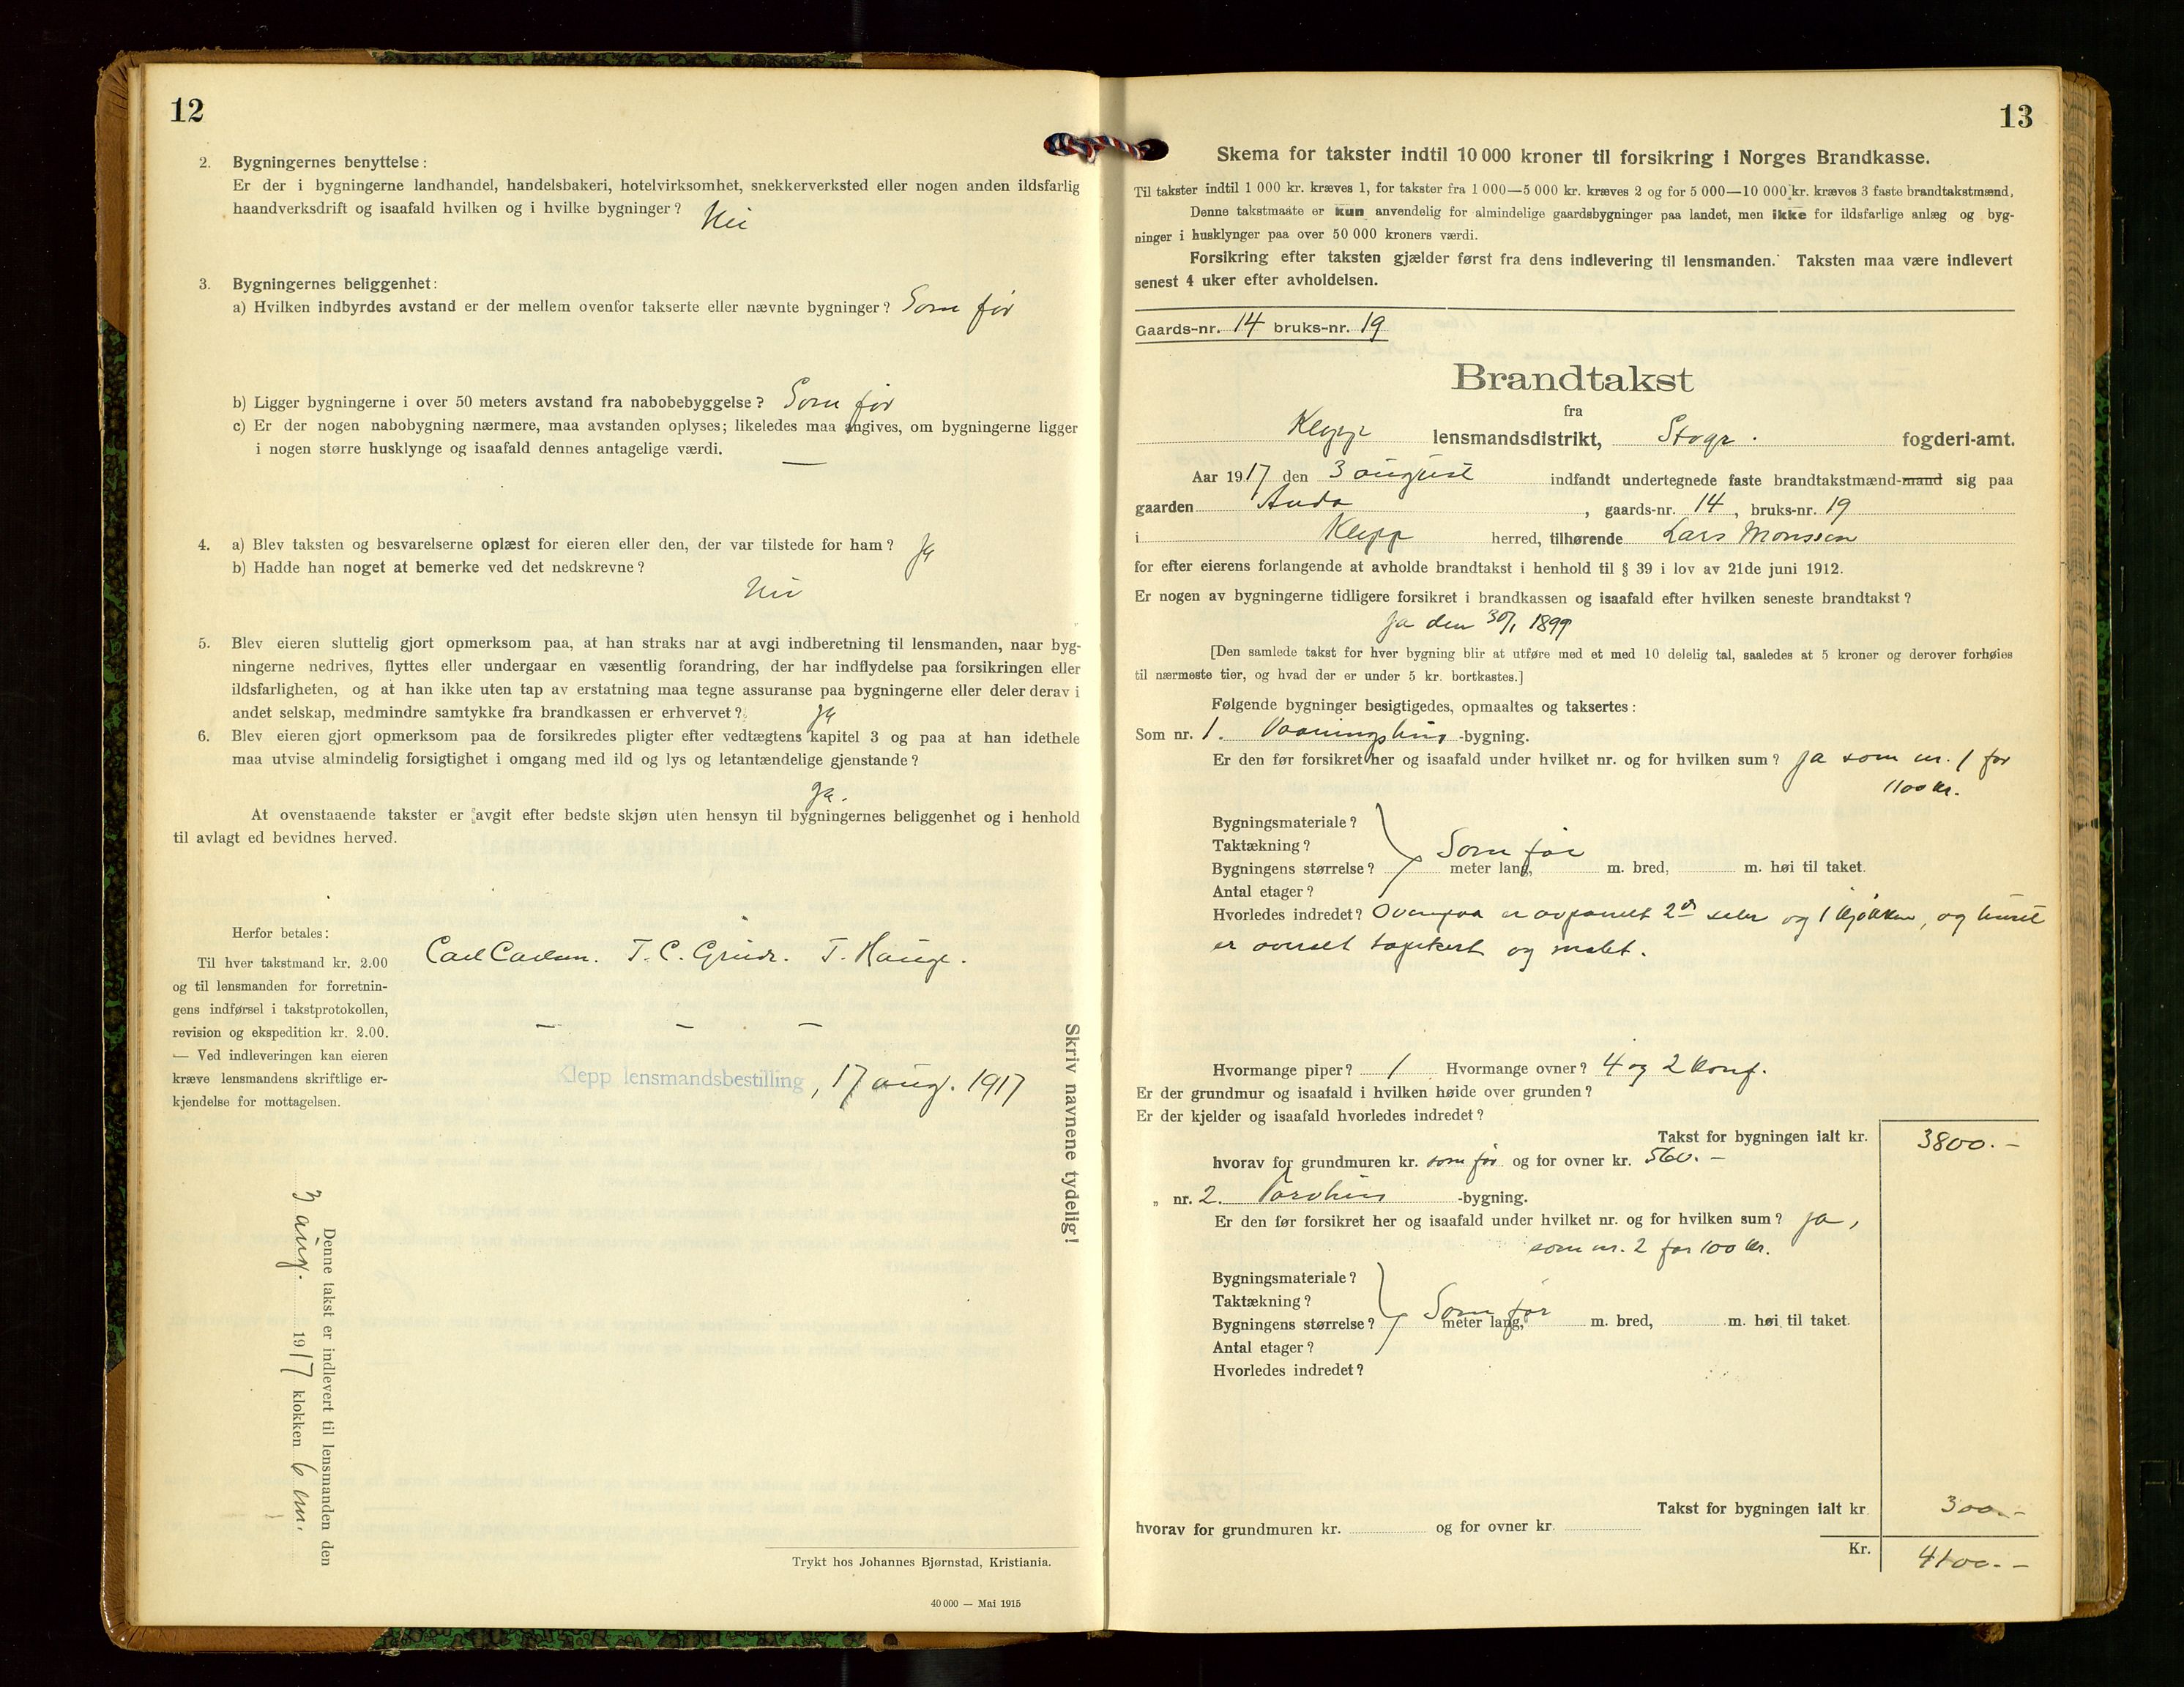 12
2. Bygningernes benyttelse:
Er der i bygningerne landhandel, handelsbakeri, hotelvirksomhet, snekkerverksted eller nogen anden ildsfarlig
haandverksdrift og isaafald hvilken og i hvilke bygninger? Nei
3. Bygningernes beliggenhet:
a) Hvilken indbyrdes avstand er der mellem ovenfor takserte eller nævnte bygninger? Som før
b) Ligger bygningerne i over 50 meters avstand fra nabobebyggelse? Som før
c) Er der nogen nabobygning nærmere, maa avstanden oplyses; likeledes maa angives, om bygningerne ligger
i nogen større husklynge og isaafald dennes antagelige værdi. —
4. a) Blev taksten og besvarelserne oplæst for eieren eller den, der var tilstede for ham? Ja
b) Hadde han noget at bemerke ved det nedskrevne?
Nei
5. Blev eieren sluttelig gjort opmerksom paa, at han straks har at avgi indberetning til lensmanden, naar byg-
ningerne nedrives, flyttes eller undergaar en væsentlig forandring, der har indflydelse paa forsikringen eller
ildsfarligheten, og at han ikke uten tap av erstatning maa tegne assuranse paa bygningerne eller deler derav i
andet selskap, medmindre samtykke fra brandkassen er erhvervet? Ja
6. Blev eieren gjort opmerksom paa de forsikredes pligter efter vedtægtens kapitel 3 og paa at han idethele
maa utvise almindelig forsigtighet i omgang med ild og lys og letantændelige gjenstande?
Ja.
At ovenstaaende takster er avgit efter bedste skjøn uten hensyn til bygningernes beliggenhet og i henhold
til avlagt ed bevidnes herved.
Herfor betales:
Til hver takstmand kr. 2.00
og til lensmanden for forretnin-
gens indførsel i takstprotokollen,
revision og ekspedition kr. 2.00.
— Ved indleveringen kan eieren
kræve lensmandens skriftlige er-
kjendelse for mottagelsen.
Carl Carlsen. T. C. Grude. T. Hauge.
— — —
Klepp lensmandsbestilling, 17 aug. 1917
Skriv navnene tydelig!
Denne takst er indlevert til lensmanden den
3 aug. 1917 klokken 6 em.
Trykt hos Johannes Bjørnstad, Kristiania.
40 000 — Mai 1915
13
Skema for takster indtil 10 000 kroner til forsikring i Norges Brandkasse.
Til takster indtil 1 000 kr. kræves 1, for takster fra 1 000—5 000 kr. kræves 2 og for 5 000—10 000 kr. kræves 3 faste brandtakstmænd.
Denne takstmaate er kun anvendelig for almindelige gaardsbygninger paa landet, men ikke for ildsfarlige anlæg og byg-
ninger i husklynger paa over 50 000 kroners værdi.
Forsikring efter taksten gjælder først fra dens indlevering til lensmanden. Taksten maa være indlevert
senest 4 uker efter avholdelsen.
Gaards-nr. 14 bruks-nr. 19
Brandtakst
fra
Klepp lensmandsdistrikt, Stvgr. fogderi-amt.
Aar 1917 den 3 august indfandt undertegnede faste brandtakstmænd-mand sig paa
gaarden Anda, gaards-nr. 14, bruks-nr. 19
i Klepp herred, tilhørende Lars Monssen
for efter eierens forlangende at avholde brandtakst i henhold til § 39 i lov av 21de juni 1912.
Er nogen av bygningerne tidligere forsikret i brandkassen og isaafald efter hvilken seneste brandtakst?
Ja den 30/1 1899
[Den samlede takst for hver bygning blir at utføre med et med 10 delelig tal, saaledes at 5 kroner og derover forhøies
til nærmeste tier, og hvad der er under 5 kr. bortkastes.]
Følgende bygninger besigtigedes, opmaaltes og taksertes:
Som nr. 1. Vaaningshus -bygning.
Er den før forsikret her og isaafald under hvilket nr. og for hvilken sum? Ja som nr. 1 for
1100 kr.
Bygningsmateriale?
Taktækning?
Som før
Bygningens størrelse? meter lang, m. bred, m. høi til taket.
Antal etager?
Hvorledes indredet? Ovenpaa er avpanelt 2de seler og 1 kjøkken, og huset
er overalt tapetsert og malet.
Hvormange piper? 1 Hvormange ovner? 4 og 2 komf.
Er der grundmur og isaafald i hvilken høide over grunden?
Er der kjelder og isaafald hvorledes indredet?
Takst for bygningen ialt kr. 3800.-
hvorav for grundmuren kr. som før og for ovner kr. 560.-
" nr. 2. Torvhus -bygning.
Er den før forsikret her og isaafald under hvilket nr. og for hvilken sum? Ja,
som nr. 2 for 100 kr.
Bygningsmateriale?
Taktækning?
Som før
Bygningens størrelse? meter lang, m. bred, m. høi til taket.
Antal etager?
Hvorledes indredet?
Takst for bygningen ialt kr. 300.-
hvorav for grundmuren kr. og for ovner kr.
Kr. 4100.-